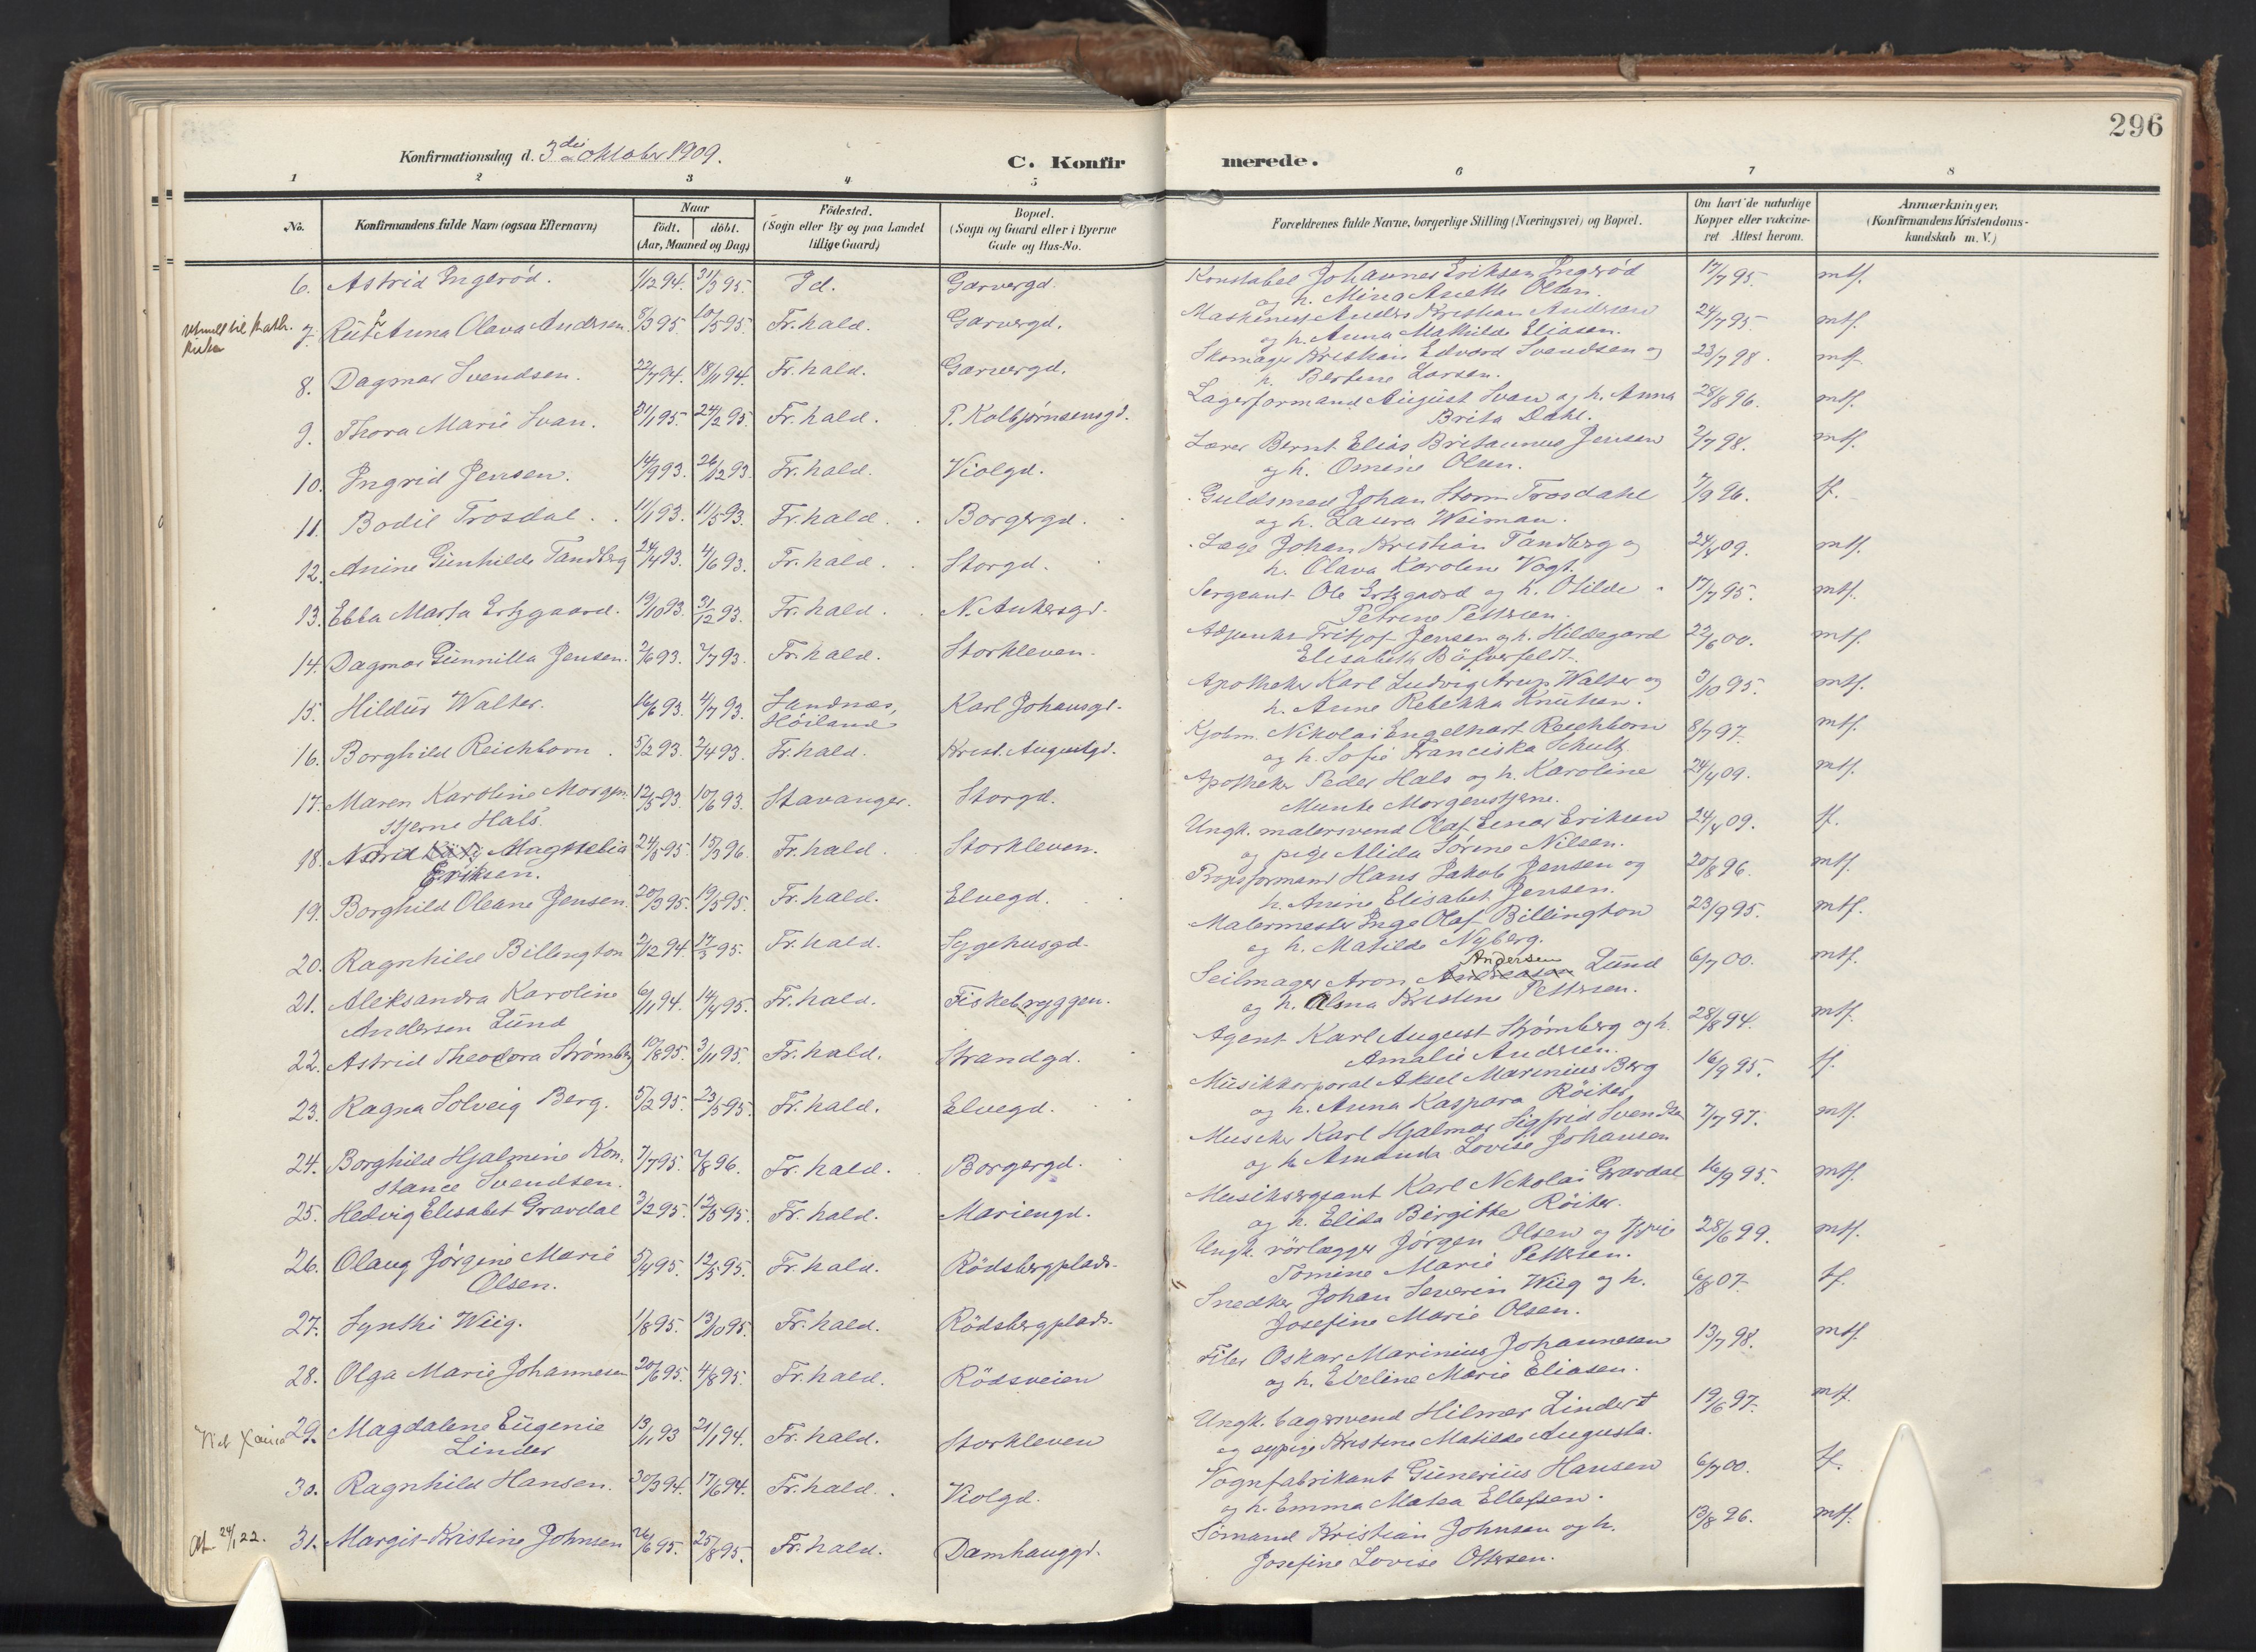 296
Konfirmationsdag d. 3die oktober 1909.
C. Konfirmerede.
1 2 3 4 5 6 7 8
No.
Konfirmandens fulde Navn (ogsaa Efternavn)
Naar
født. døbt.
(Aar, Maaned og Dag)
Födested.
(Sogn eller By og paa Landet tillige Gaard)
Bopæl.
(Sogn og Gaard eller i Byerne Gade og Hus-No.
Forældrenes fulde Navne, borgerlige Stilling (Næringsvei) og Bopæl.
Om havt de naturlige Kopper eller vakcineret Attest herom.
Anmærkninger,
(Konfirmandens Kristendomskundskab m. V.)
6. Astrid Ingerød. 1/12 94. 31/3 95. Id. Garvergd. Konstabel Johannes Eriksen Ingerød 17/7 95. mtf.
og h. Mina Anette Olsen.
7. Rut Anna Olava Andersen. 8/3 95 10/5 95. Fr.hald. Garvergd. Maskinist Anders Kristian Andersen 24/7 95. mtf.
og h. Anna Mathilde Eliasen.
8. Dagmar Svendsen. 22/7 94. 18/11 94. Fr.hald. Garvergd. Skomager Kristian Edvard Svendsen og 23/7 98. mtf.
h. Bertine Larsen.
9. Thora Marie Svan. 31/1 95. 24/2 95. Fr.hald. P. Kolbjørnsensgd. Lagerformand August Svan og h. Anna 28/8 96. mtf.
Brita Dahl.
10. Ingrid Jensen. 14/9 93. 26/12 93. Fr.hald. Violgd. Lærer Bernt Elias Britannus Jensen 2/7 98. mtf.
og h. Omine Olsen.
11. Bodil Trosdal. 11/1 93. 11/5 93. Fr.hald. Borgergd. Guldsmed Johan Storm Trosdahl 7/9 96. tf.
og h. Laura Weiman.
12. Anine Gunhilde Tandberg 24/4 93. 4/6 93. Fr.hald. Storgd. Læge Johan Kristian Tandberg og 24/4 09. mtf.
h. Olava Karoline Vogt.
13. Ebba Marta Ertzgaard. 19/10 93. 31/12 93. Fr.hald. N. Ankersgd. Sergeant Ole Ertzgaard og h. Otilde 17/7 95. mtf.
Petrine Pettersen.
14. Dagmar Gunnilla Jensen. 2/6 93. 2/7 93. Fr.hald. Storkleven. Adjunkt Fritjof Jensen og h. Hildegard 22/6 00. mtf.
Elisabeth Bäfverfeldt.
15. Hildur Walter. 16/6 93. 4/7 93. Sandnæs, Karl Johansgd. Apotheker Karl Ludvig Arup Walter og 3/10 95. mtf.
Høiland h. Anne Rebekka Knutsen.
16. Borghild Reichborn. 5/2 93. 2/4 93. Fr.hald. Krist. Augustgd. Kjøbm. Nikolai Engelhart Reichborn 8/7 97. mtf.
og h. Sofie Franciska Schultz
17. Maren Karoline Morgen- 12/5 93. 10/6 93. Stavanger. Storgd. Apotheker Peder Hals og h. Karoline 24/4 09. mtf.
stjerne Hals. Munte Morgenstjerne.
18. Astrid Magnelia 24/5 95. 15/3 96. Fr.hald. Storkleven. Ungk. malersvend Olaf Einar Eriksen 24/4 09. tf.
Eriksen. og pige Alida Sørine Nilsen.
19. Borghild Oleane Jensen. 20/3 95. 19/5 95. Fr.hald. Elvegd. Propsformand Hans Jakob Jensen og 20/8 96. mtf.
h. Anine Elisabet Jensen.
20. Ragnhild Billington 2/12 94. 17/3 95. Fr.hald. Sygehusgd. Malermester Inge Olaf Billington 23/9 95. mtf.
og h. Matilde Nyberg.
21. Aleksandra Karoline 6/11 94. 14/4 95. Fr.hald. Fiskebryggen. Seilmager Aron Andersen Lund 6/7 00. mtf.
Andersen Lund og h. Alma Kristine Pettersen.
22. Astrid Theodora Strømberg 10/8 95. 3/11 95. Fr.hald. Strandgd. Agent Karl August Strømberg og h. 28/8 94. mtf.
Amalie Andersen.
23. Ragna Solveig Berg. 5/2 95. 23/5 95. Fr.hald. Elvegd. Musikkorporal Aksel Marinius Berg 16/9 95. tf.
og h. Anna Kaspara Røiter
24. Borghild Hjalmine Kon- 7/7 95. 2/8 96. Fr.hald. Borgergd. Musiker Karl Hjalmar Sigfrid Svendsen 7/7 97. mtf.
stance Svendsen. og h. Amanda Lovise Johansen
25. Hedvig Elisabet Gravdal 3/2 95. 12/5 95. Fr.hald. Mariengd. Musiksergeant Karl Nikolai Gravdal 16/9 95. mtf.
og h. Elida Birgitte Røiter.
26. Olaug Jørgine Marie 5/4 95. 12/5 95. Fr.hald. Rödsbergplads. Ungk. rörlægger Jörgen Olsen og pige 28/6 99. mtf.
Olsen. Tomine Marie Pettersen.
27. Synthi Wiig. 1/8 95. 13/10 95. Fr.hald. Rödsbergplads. Snedker Johan Severin Wiig og h. 6/8 07. tf.
Josefine Marie Olsen.
28. Olga Marie Johannesen 20/6 95. 4/8 95. Fr.hald. Rödsveien Filer Oskar Marinius Johannesen 13/7 98. mtf.
og h. Eveline Marie Eliasen.
29. Magdalene Eugenie 13/11 93 21/1 94. Fr.hald. Storkleven Ungk. bagersvend Hilmar Linder 19/6 97. mtf.
Linder og sypige Kristine Matilde Augusta.
30. Ragnhild Hansen. 30/3 94. 17/6 94. Fr.hald. Violgd. Vognfabrikant Gunerius Hansen 6/7 00. tf.
og h. Emma Matea Ellefsen.
24/1 22. 31. Margit Kristine Johnsen 26/6 95. 25/8 95. Fr.hald. Damhauggd. Sömand Kristian Johnsen og h. 13/8 96. mtf.
Josefine Lovise Ottersen.